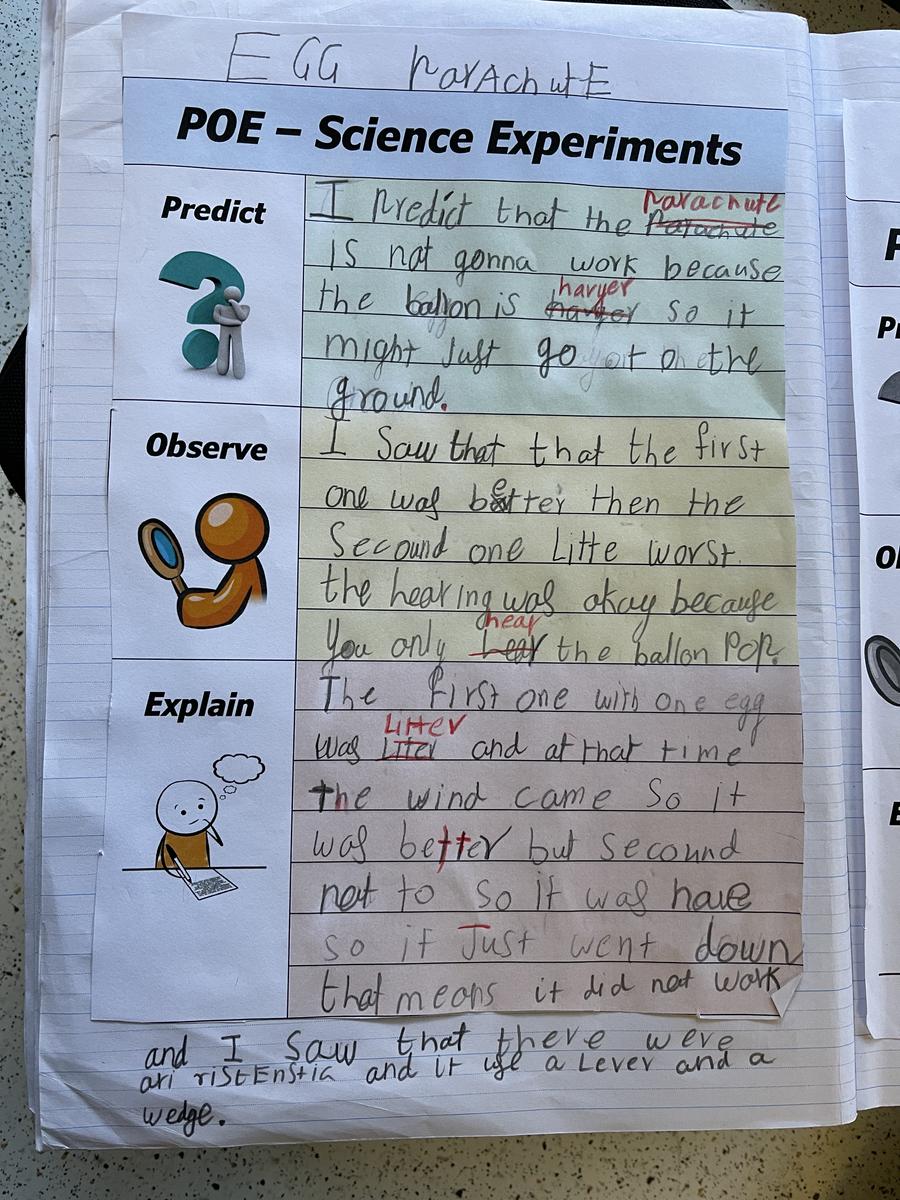 EGG parachutE
POE – Science Experiments
Predict
I predict that the parachute
is not gonna work because
the ballon is harger so it
might Just go on the
ground.
Observe
I Saw that that the first
one was better then the
Secound one Litte worst
the hearing was okay because
You only hear the ballon Pop.
Explain
The first one with one egg
was Litter and at that time
the wind came So it
was better but Secound
not to So it was have
so it Just went down
that means it did not work
and I Saw that there were
ari ristEnstic and it use a Lever and a
wedge.